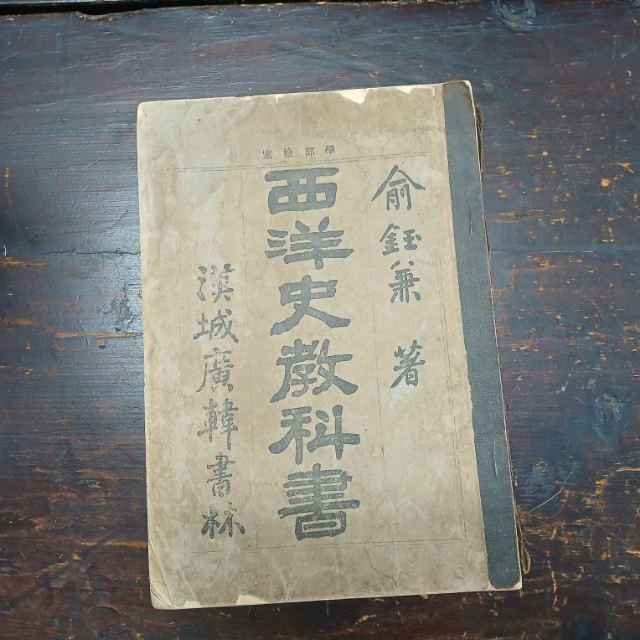 學部檢定
俞鈺兼 著
西洋史教科書
漢城廣韓書林